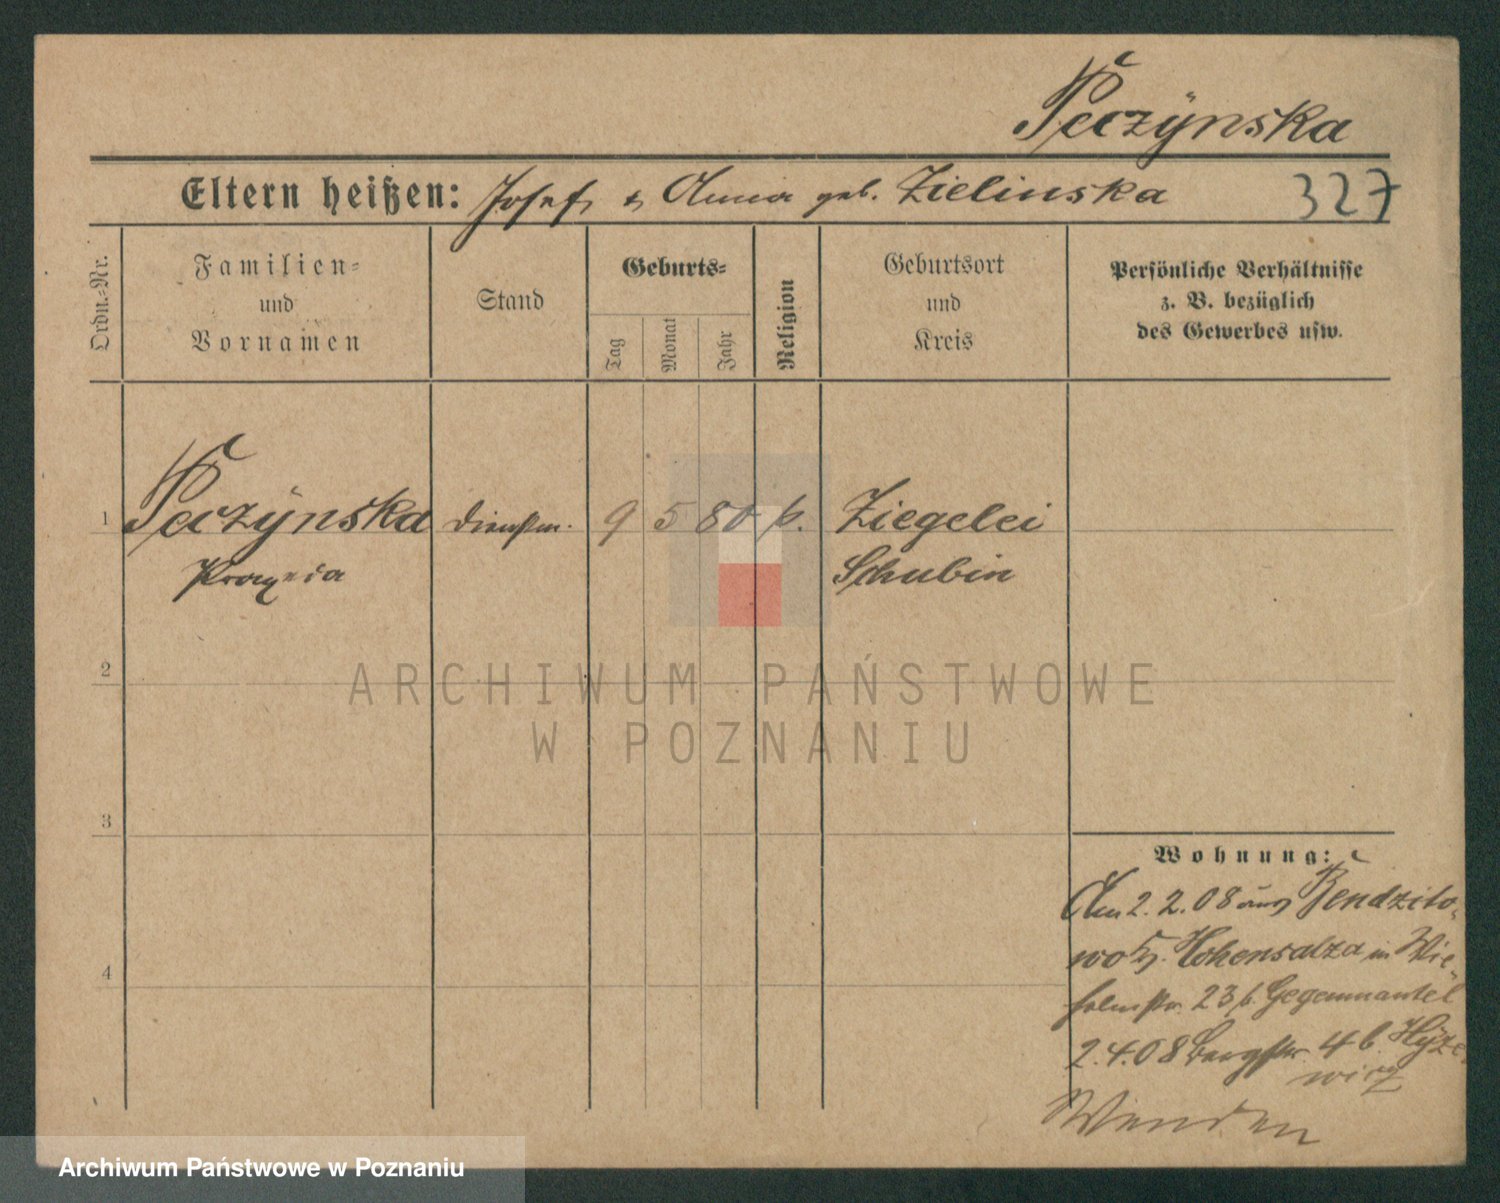 Peczÿnska
Eltern heißen: Josef & Anna geb. Zielinska 327
Ordn.-Nr.
Familien-
und
Vornamen
Stand
Geburts-
Tag
Monat
Jahr
Religion
Geburtsort
und
Kreis
Persönliche Verhältnisse
z. B. bezüglich
des Gewerbes usw.
1 Peczÿnska Dienstm. 9 5 80 k. Ziegelei
Schubin
2
ARCHIWUM PAŃSTWOWE
W POZNANIU
3
Wohnung:
Am 2.2.08 aus Bendzito-
wo Hohensalza in Wil-
helmstr. 23 b. Gegenmantel
2.4.08 Bergstr. 4 b.
4
Wenden
Archiwum Państwowe w Poznaniu